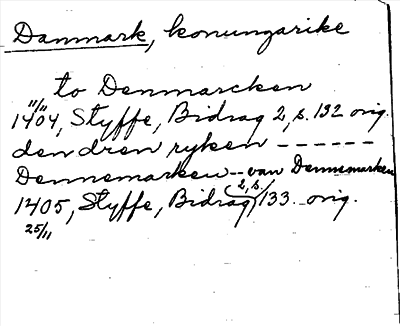 Danmark, konungarike
to Denmarcken
11/11
1404, Styffe, Bidrag 2, s. 132 orig.
den dren ryken ------
Dennemarken -- van Dennemarken
1405, Styffe, Bidrag 2, s. 133. orig.
25/11